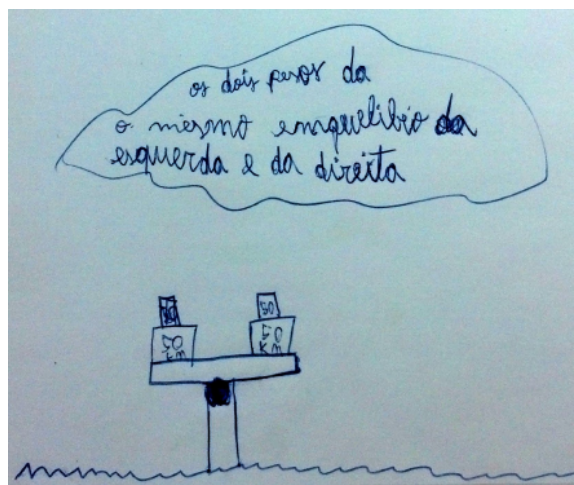 os dois pesos da
o mesmo emquelibio da
esquerda e da direita
50